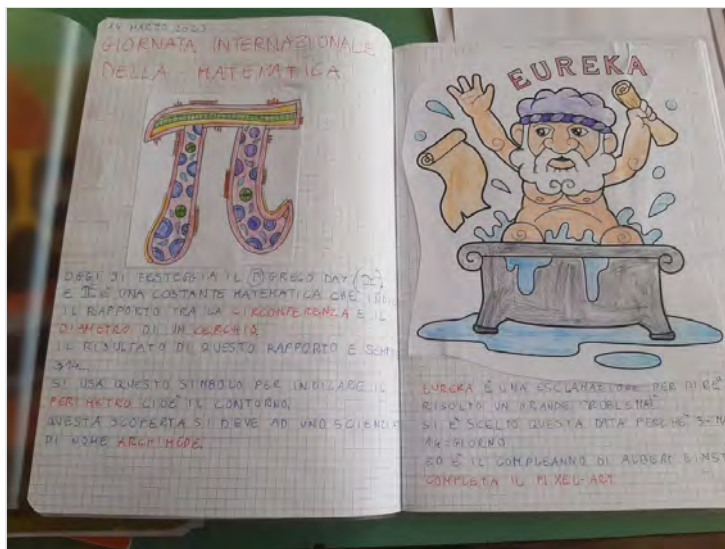 14 MARZO 2023
GIORNATA INTERNAZIONALE
DELLA MATEMATICA
OGGI SI FESTEGGIA IL GRECO DAY
E È UNA COSTANTE MATEMATICA CHE
IL RAPPORTO TRA LA CIRCONFERENZA E IL
DIAMETRO DI UN CERCHIO.
IL RISULTATO DI QUESTO RAPPORTO È
3,14...
SI USA QUESTO SIMBOLO PER INDICARE IL
PERIMETRO CIOÈ IL CONTORNO.
QUESTA SCOPERTA SI DEVE AD UNO
DI NOME ARCHIMEDE.
EUREKA
EUREKA È UNA ESCLAMAZIONE PER DIRE
RISOLTO UN GRANDE PROBLEMA
SI È SCELTO QUESTA DATA PERCHÈ
14=GIORNO
ED È IL COMPLEANNO DI ALBERT
COMPLETA IL PIXEL-ART